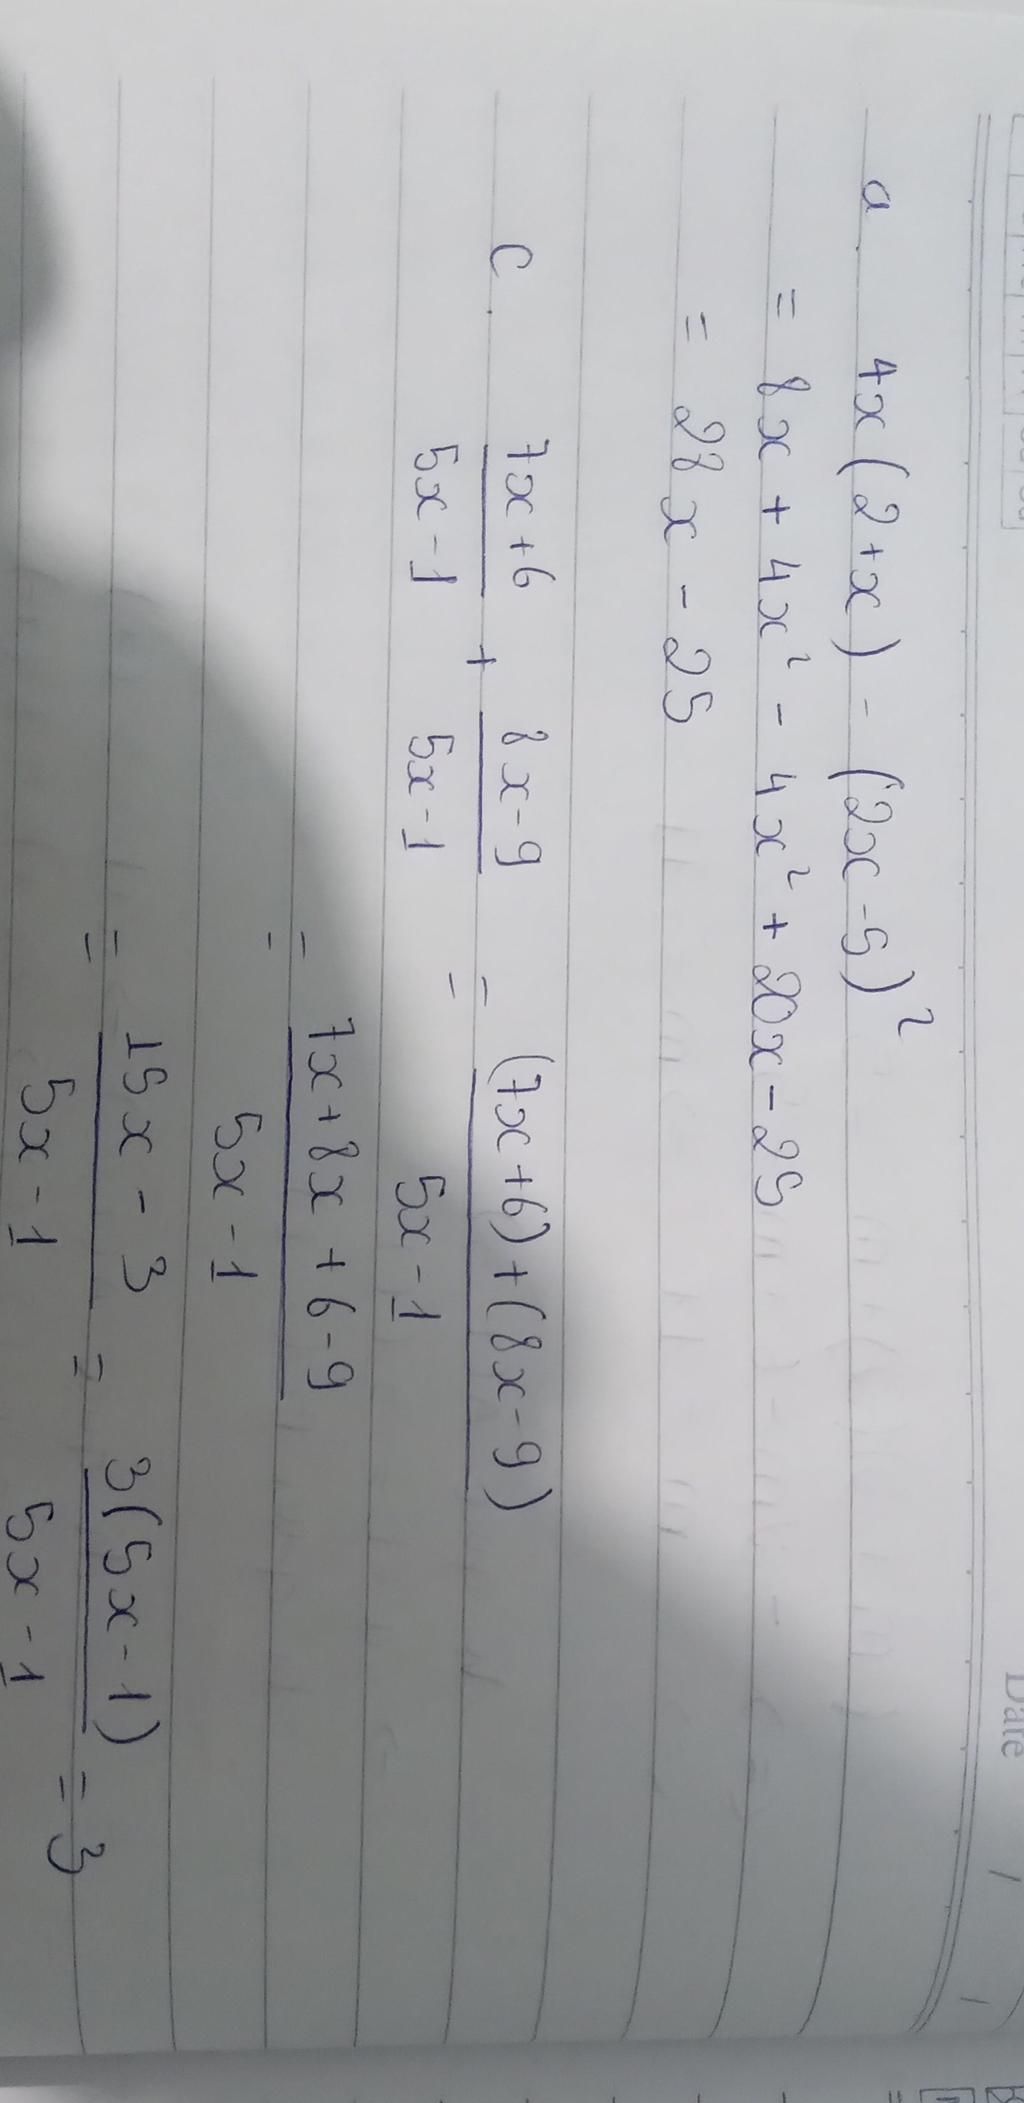 Date / /
a. 4x(2+x) - (2x-5)²
= 8x + 4x² - 4x² + 20x - 25
= 28x - 25
c. (7x+6)/(5x-1) + (8x-9)/(5x-1) = ((7x+6)+(8x-9))/(5x-1)
= (7x+8x+6-9)/(5x-1)
= (15x-3)/(5x-1) = 3(5x-1)/(5x-1) = 3